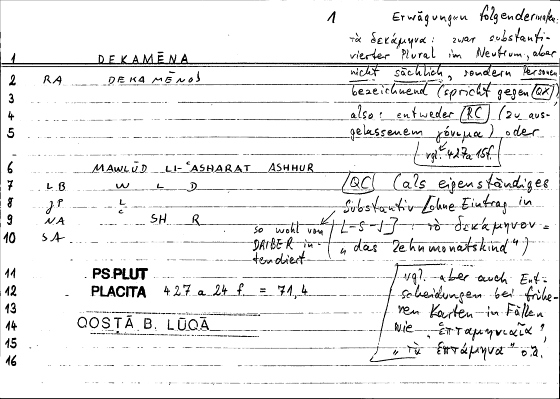 1 Erwägungen folgendermaßen:
τὰ δεκάμηνα: zwar substanti-
vierter Plural im Neutrum, aber
nicht sächlich, sondern Personen
bezeichnend (spricht gegen QX)
also: entweder RC (zu aus-
gelassenem γόνιμα) oder
vgl. 427a 15f.
QC (als eigenständiges
Substantiv [ohne Eintrag in
L-S-J]: τὸ δεκάμηνον =
„das Zehnmonatskind")
so wohl von
DAIBER in-
tendiert
vgl. aber auch Ent-
scheidungen bei frühe-
ren Karten in Fällen
wie „ἑπταμηνιαῖα",
„τὰ ἑπτάμηνα" o.ä.
1 DEKAMĒNA
2 RA DEKAMĒNOS
3
4
5
6 MAWLŪD LI-ʿASHARAT ASHHUR
7 LB W L D
8 JP L
9 NA ʿ SH R
10 SA
11 PS.PLUT
12 PLACITA 427 a 24 f. = 71,4
13
14 QOSṬĀ B. LŪQĀ
15
16